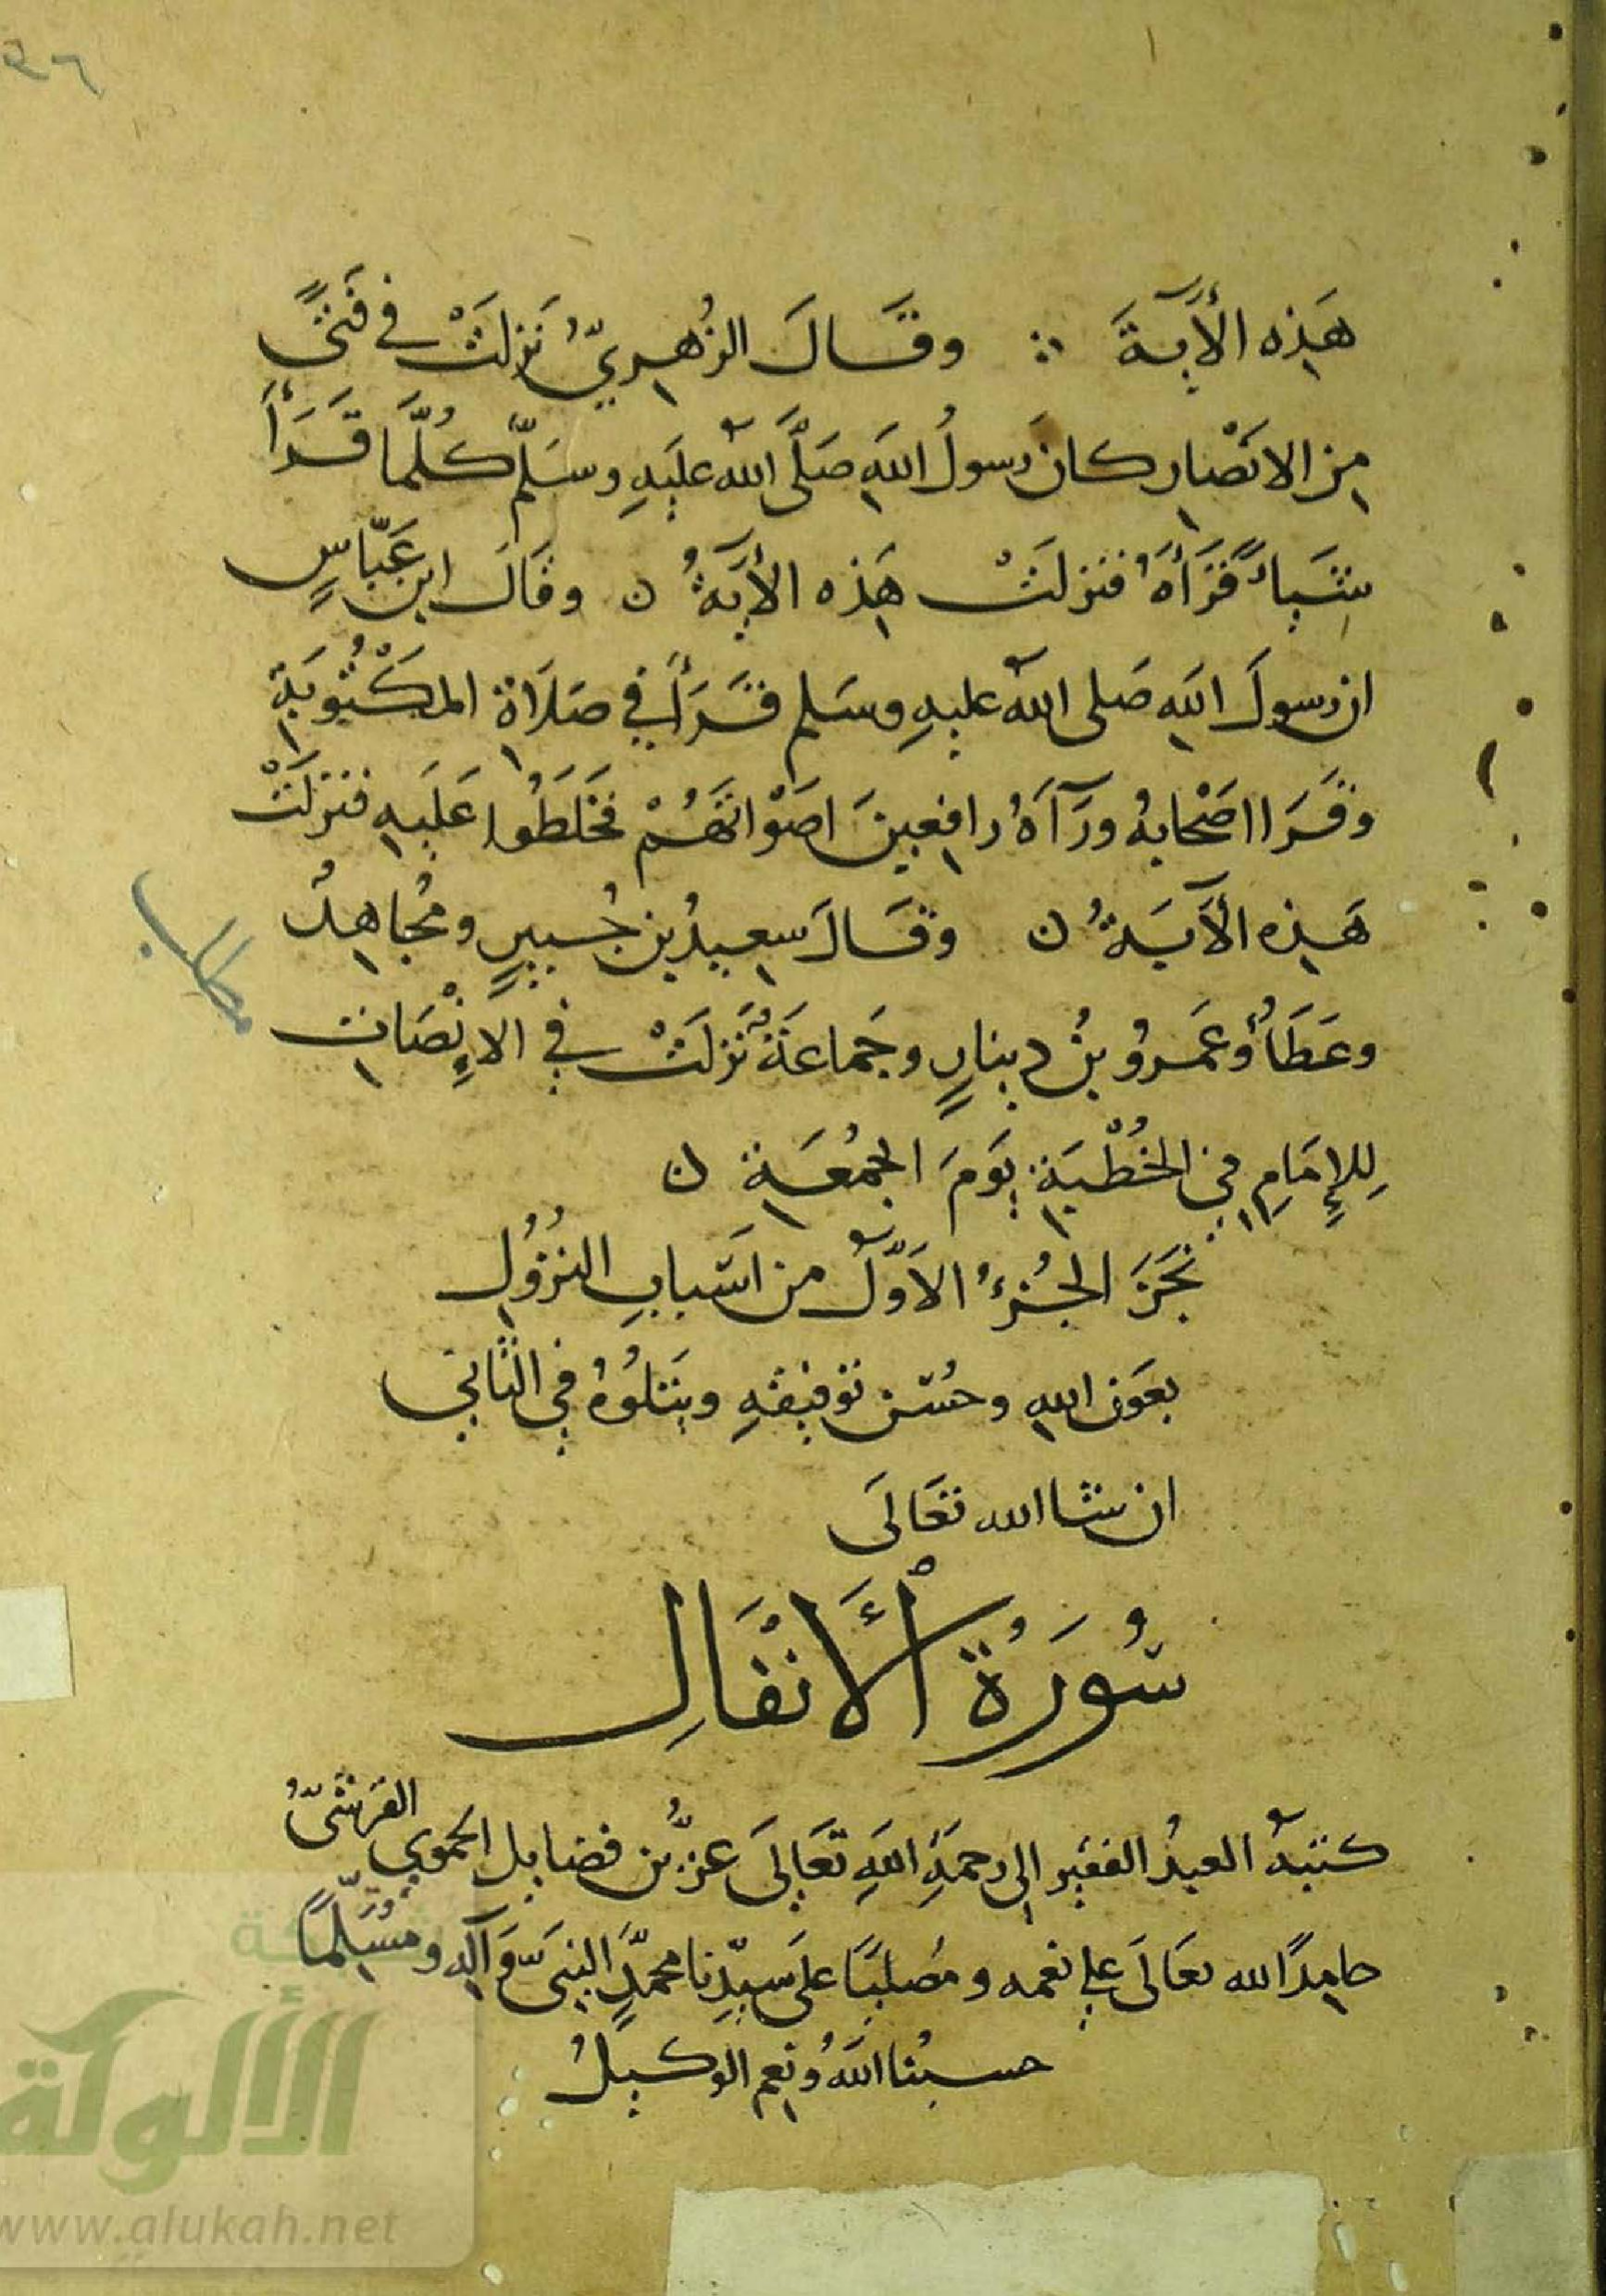 ٩٦
هَذِهِ الأَيةَ ؞ وقَالَ الزُهرِيّ نَزلَتْ في فَتًى
مِن الانْصارِ كان رَسولُ اللهِ صَلَّى اللهُ عليَهِ وسَلّم كُلَّما قَرَأَ
شَيأً قَرَأَهُ فنزلَتْ هَذِه الأيَةُ ن وقَالَ ابن عَبّاسٍ
ان رسولَ اللهِ صَلى اللهُ عليهِ وسَلم قَرَأَ في صَلَاة المَكْتُوبَةِ
وقَرَا اصْحابهُ ورَآهُ رافِعِينَ اصَوْاتَهُمْ فخَلَطُوا عَلَيهِ فنزلَتْ
هَذِه الأَيَةُ ن وقَالَ سعِيدُ بن جُبيرٍ ومُجاهِدُ
مطلب
وعَطَأُ وعَمرُو بنُ دينارٍ وجَماعَةُ نَزلَتْ في الاِنْصَاتِ
لِلإِمَامِ في الخُطْبَةِ يَومَ الجُمُعَةِ ن
نَجَزَ الجُزءُ الاَوّلُ من اسْبابِ النُزُولِ
بعَونِ اللهِ وحُسْن توفيقهِ ويَتلوُهُ في الثاني
ان شا الله تعَالَى
سُورَةُ ٱلْأَنْفَالِ
كتبهُ العبدُ الفقير إلى رحمَةِ اللهِ تعَالَى عزُّ بن فضايل الحموي القرشيّ
حامِدًا لله تعَالَى علي نعمه ومُصليًا علَى سيّدِنا محمّدٍ النبيّ وَآلِهِ ومُسَلِّمًا
حسبُنا اللهُ ونعِم الوكيلُ
شبكة
الألوكة
www.alukah.net